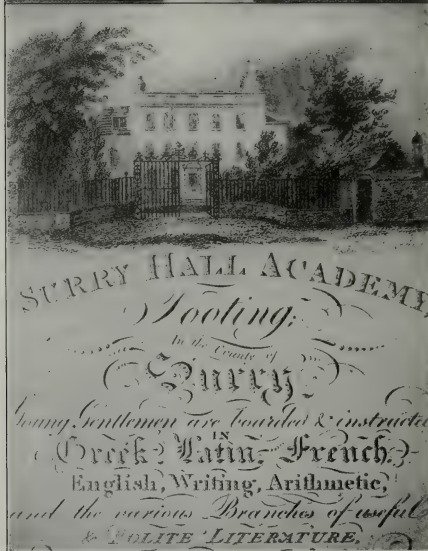 SURRY HALL ACADEMY,
Tooting;
In the County of
Surry.
Young Gentlemen are boarded & instructed
IN
Greek, Latin, French,
English, Writing, Arithmetic,
and the various Branches of useful
& POLITE LITERATURE.